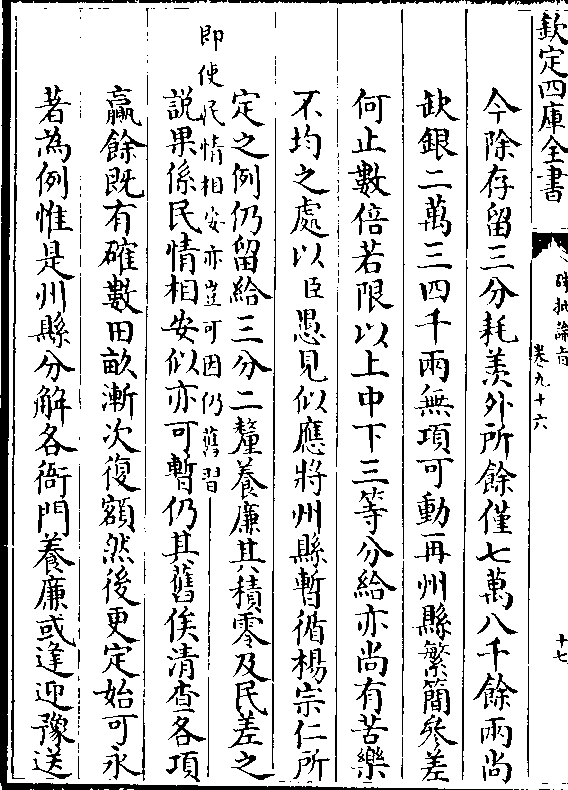 欽定四庫全書
硃批諭旨
卷九十六
十七
今除存留三分耗羡外所餘僅七萬八千餘兩尚
缺銀二萬三四千兩無項可動再州縣繁簡叅差
何止數倍若限以上中下三等分給亦尚有苦樂
不均之處以臣愚見似應將州縣暫循楊宗仁所
定之例仍留給三分二釐養廉其積零及民差之
即使民情相安亦豈可因仍舊習
說果係民情相安似亦可暫仍其舊俟清查各項
贏餘既有確數田畝漸次復額然後更定始可永
著為例惟是州縣分解各衙門養廉或逢迎豫送